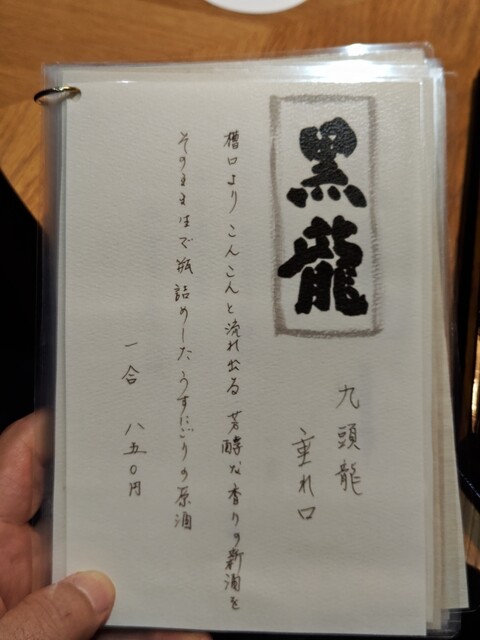 黒龍
九頭龍
垂れ口
槽口よりこんこんと流れ出る芳醇な香りの新酒を
そのまま生で瓶詰めしたうすにごりの原酒
一合 八五〇円